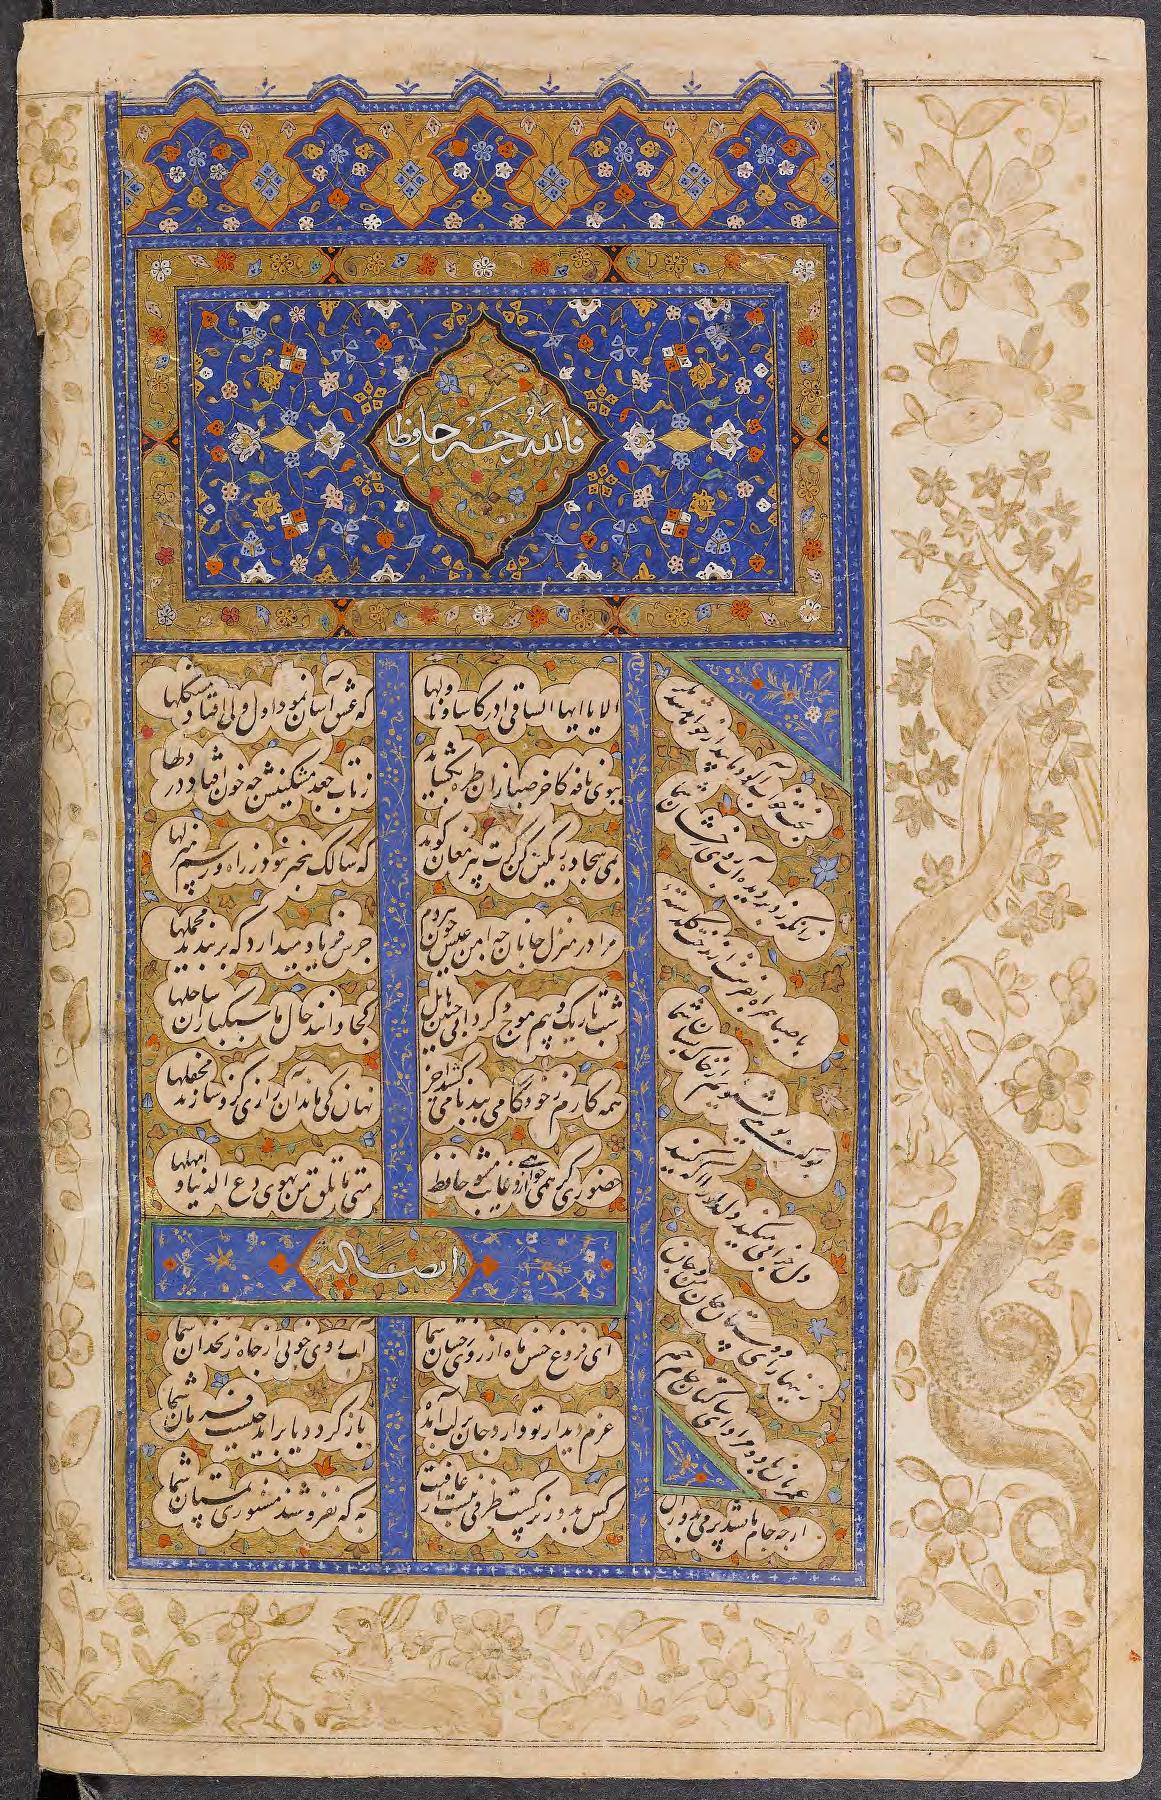 فالله خیر حافظا
الا یا ایها الساقی ادر کاسا و ناولها
که عشق آسان نمود اول ولی افتاد مشکلها
ببوی نافه کاخر صبا زان طره بگشاید
ز تاب جعد مشکینش چه خون افتاد در دلها
بمی سجاده رنگین کن گرت پیر مغان گوید
که سالک بیخبر نبود ز راه و رسم منزلها
مرا در منزل جانان چه امن عیش چون هر دم
جرس فریاد میدارد که بربندید محملها
شب تاریک و بیم موج و گردابی چنین هایل
کجا دانند حال ما سبکباران ساحلها
همه کارم ز خودکامی ببدنامی کشید آخر
نهان کی ماند آن رازی کزو سازند محفلها
حضوری گر همی خواهی ازو غایب مشو حافظ
متی ما تلق من تهوی دع الدنیا و اهملها
ایضا له
ای فروغ حسن ماه از روی رخشان شما
آب روی خوبی از چاه زنخدان شما
عزم دیدار تو دارد جان بر لب آمده
باز گردد یا برآید چیست فرمان شما
کس بدور نرگست طرفی نبست از عافیت
به که نفروشند مستوری بمستان شما
بخت خواب آلود ما بیدار خواهد شد مگر
زانکه زد بر دیده آب روی رخشان شما
با صبا همراه بفرست از رخت گلدسته
بو که بویی بشنویم از خاک بستان شما
دل خرابی میکند دلدار را آگه کنید
زینهار ای دوستان جان من و جان
عمرتان باد و مراد ای ساقیان بزم جم
گرچه جام ما نشد پر می بدوران